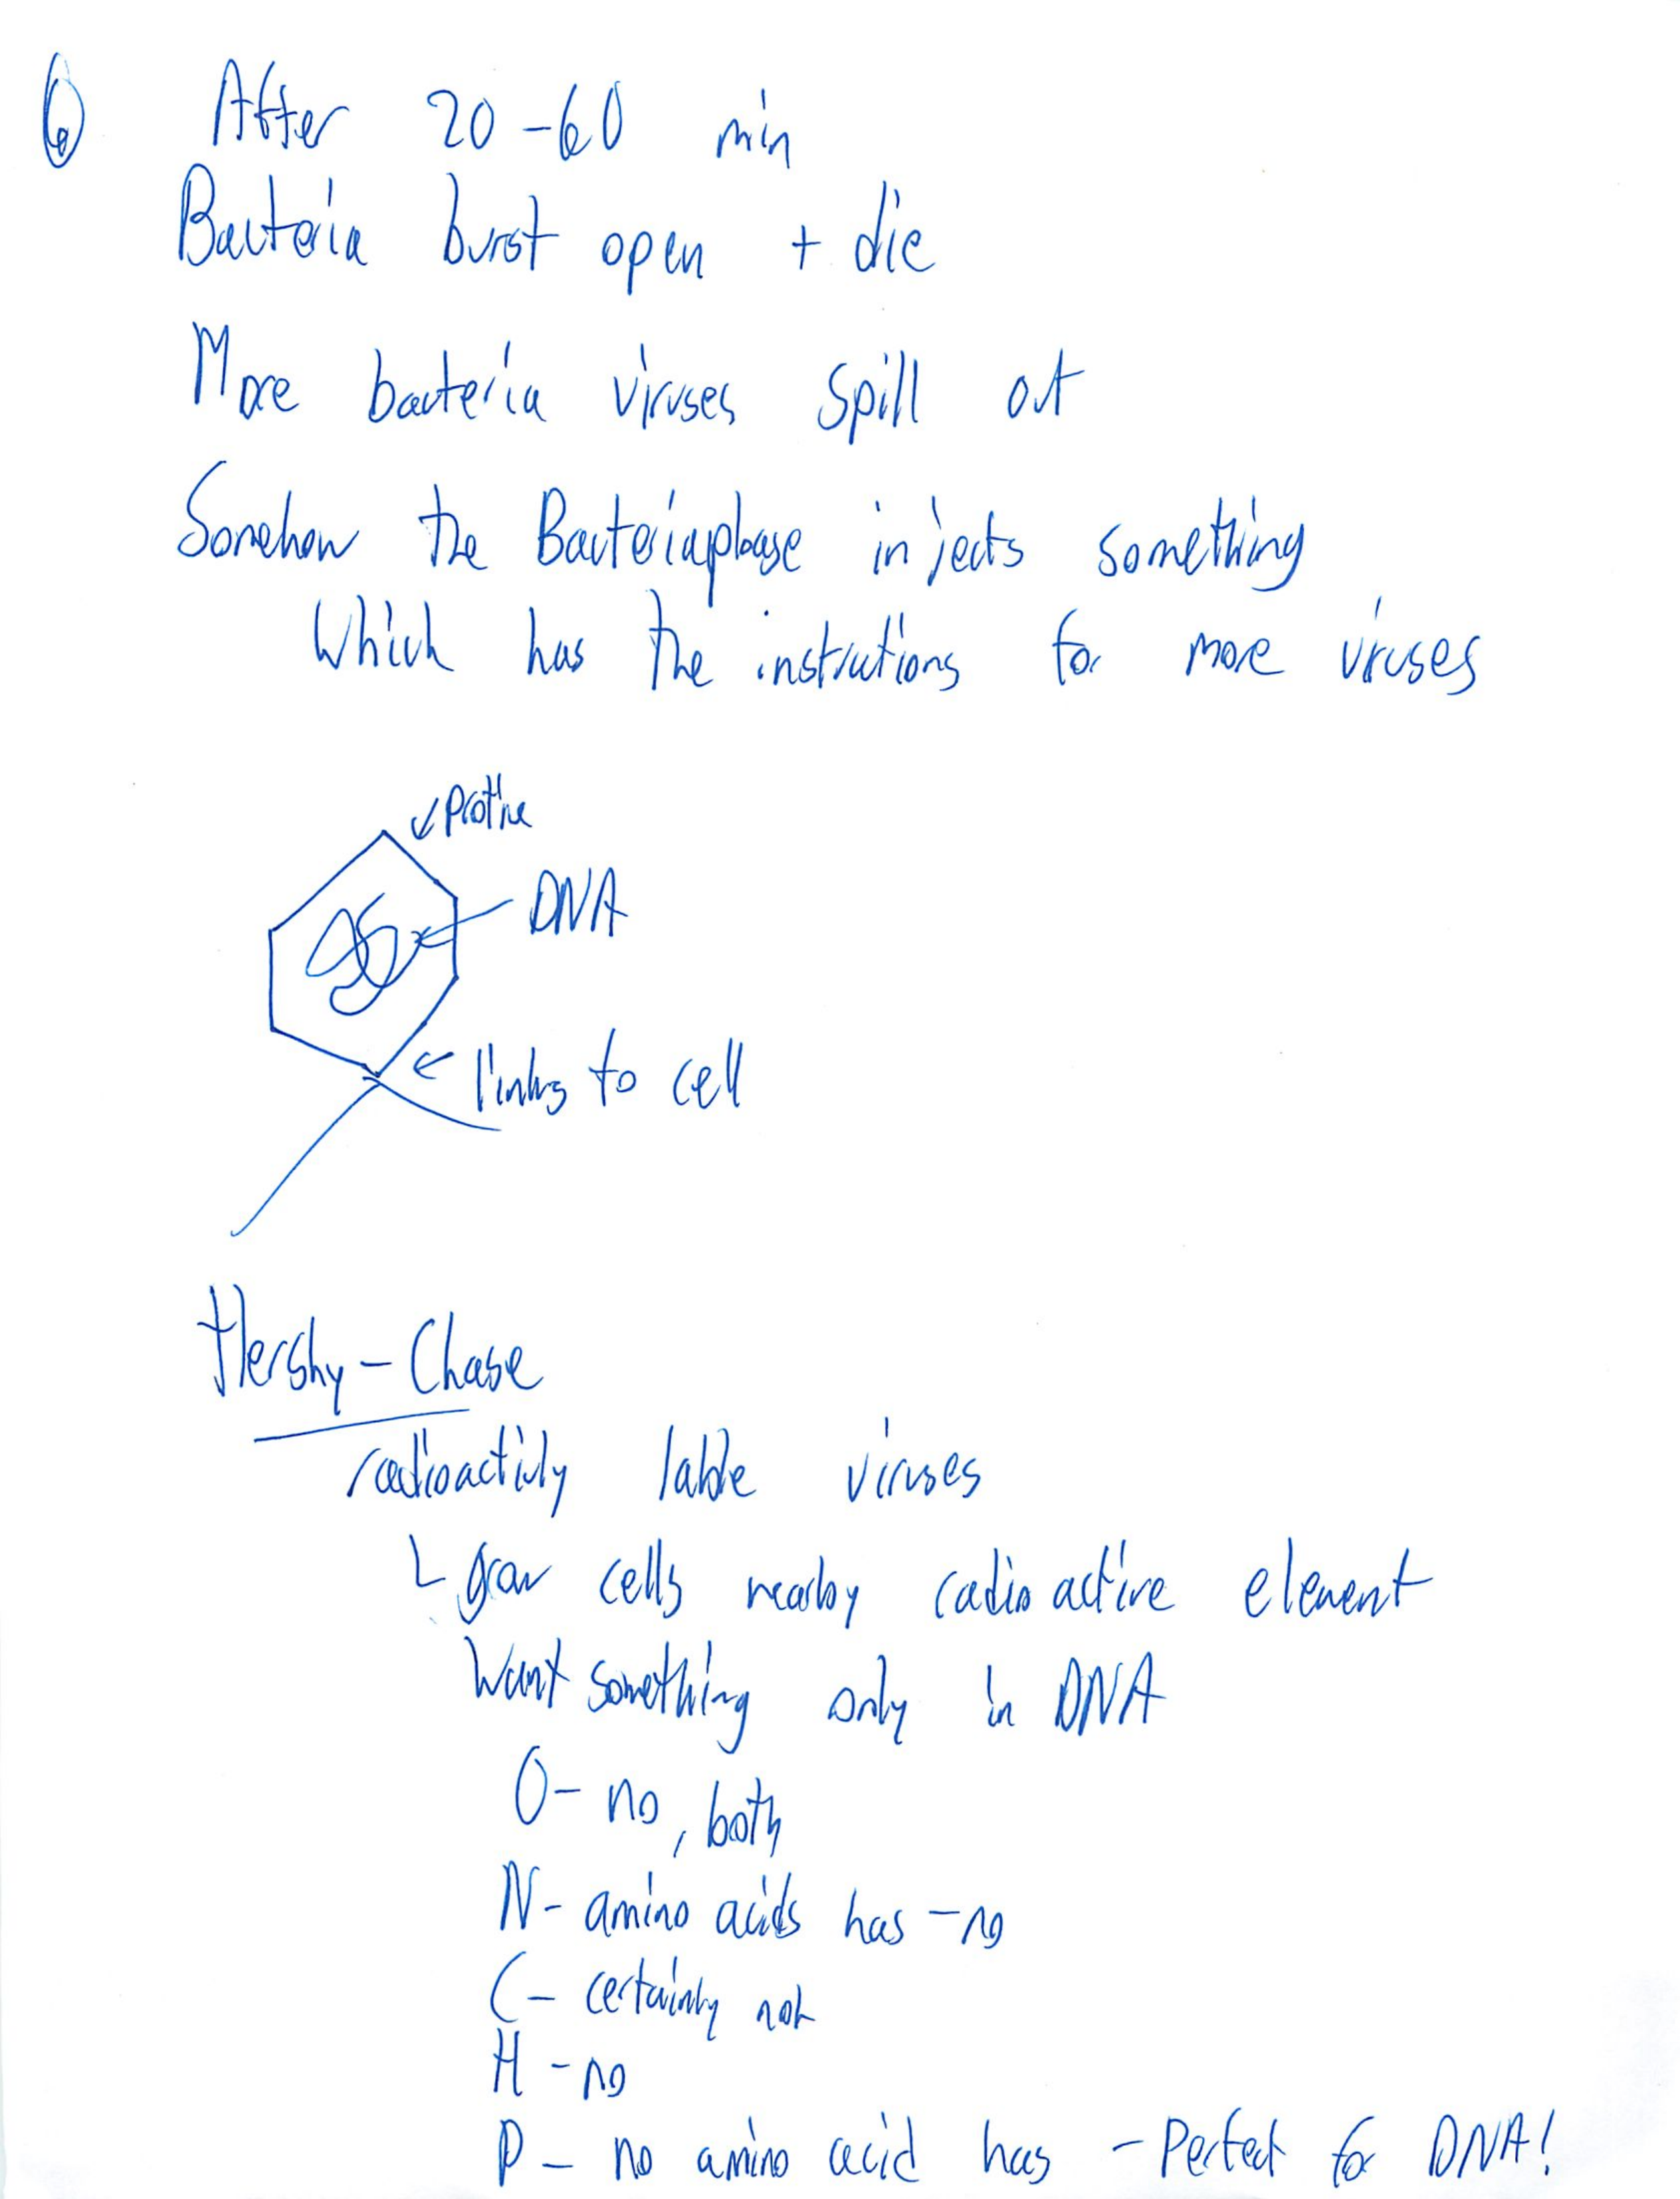 6
After 20-60 min
Bacteria burst open + die
More bacteria viruses spill out
Somehow the Bacteriaphase injects something
Which has the instructions for more viruses
protine
DNA
links to cell
Hershy-Chase
radioactivly lable viruses
grow cells nearby radioactive element
Want something only in DNA
O- no, both
N- amino acids has -no
C- certainly not
H -no
P- no amino acid has -Perfect for DNA!